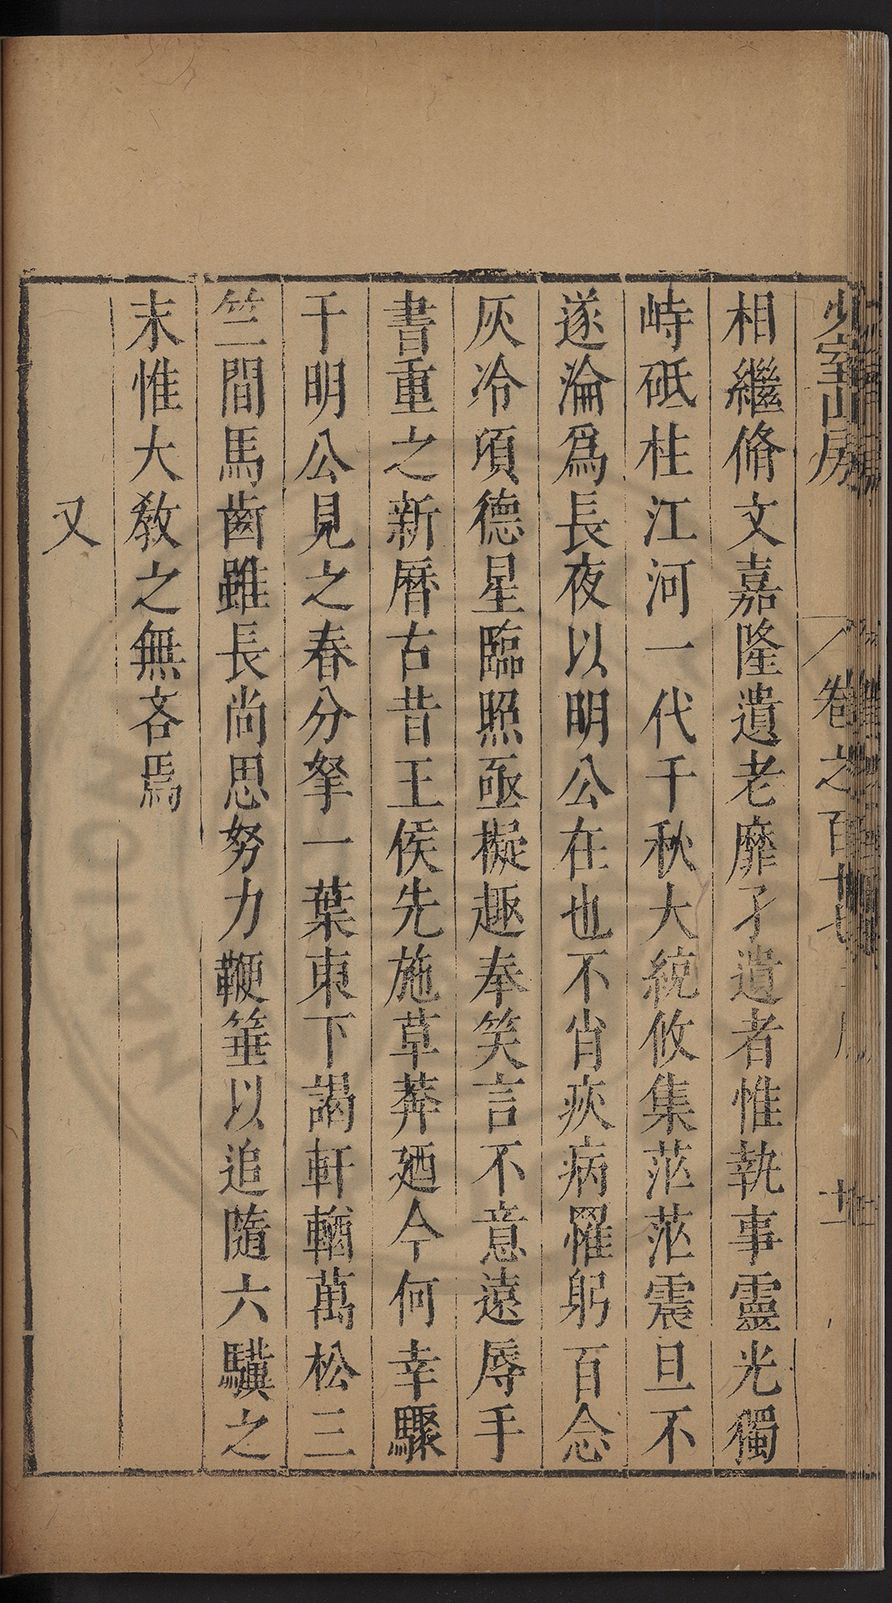 少室山房
卷之百十七
相繼脩文嘉隆遺老靡孑遺者惟執事靈光獨
峙砥柱江河一代千秋大統攸集茫茫震旦不
遂淪爲長夜以明公在也不肖疢病罹躬百念
灰冷頃德星臨照亟擬趣奉笑言不意遠辱手
書重之新曆古昔王侯先施草莽廼今何幸驟
干明公見之春分拏一葉東下謁軒輶萬松三
竺間馬齒雖長尚思努力鞭箠以追隨六驥之
末惟大敎之無吝焉
又